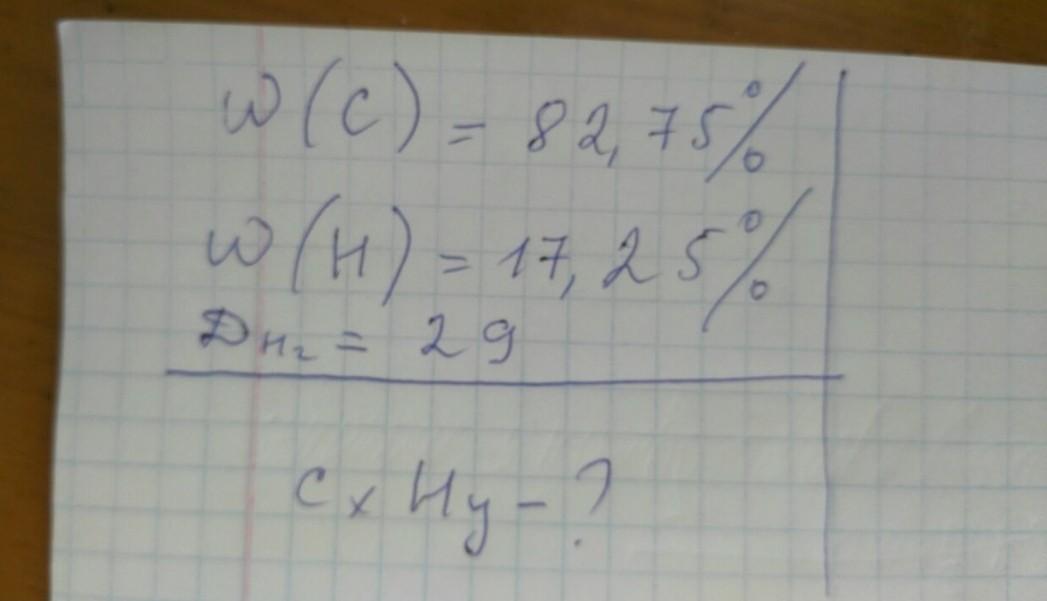 W(C) = 82,75%
W(H) = 17,25%
Дн₂ = 29
CxHy - ?